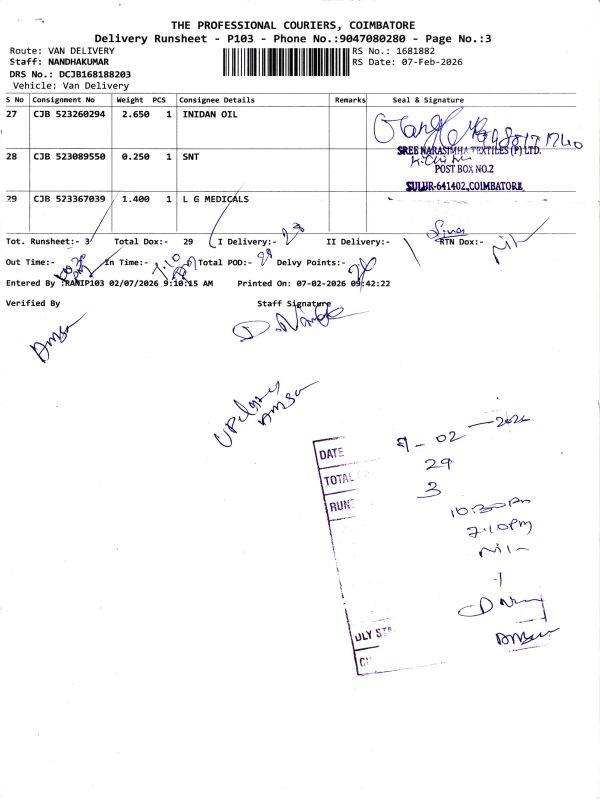 THE PROFESSIONAL COURIERS, COIMBATORE
Delivery Runsheet - P103 - Phone No.:9047080280 - Page No.:3
Route: VAN DELIVERY
RS No.: 1681882
Staff: NANDHAKUMAR
RS Date: 07-Feb-2026
DRS No.: DCJB168188203
Vehicle: Van Delivery
S No Consignment No Weight PCS Consignee Details Remarks Seal & Signature
27 CJB 523260294 2.650 1 INIDAN OIL
28 CJB 523089550 0.250 1 SNT
SREE NARASIMHA TEXTILES (P) LTD.
POST BOX NO.2
SULUR-641402, COIMBATORE
29 CJB 523367039 1.400 1 L G MEDICALS
Tot. Runsheet:- 3 Total Dox:- 29 I Delivery:- 28 II Delivery:- RTN Dox:- Nil
Out Time:- 10.30 In Time:- 7.10 Total POD:- 28 Delvy Points:- 28
Entered By :RANIP103 02/07/2026 9:10:15 AM Printed On: 07-02-2026 09:42:22
Verified By Staff Signature
DATE 7-02-2026
TOTAL 29
RUNS 3
10:30Am
7:10PM
Nil
-1
DLY STA